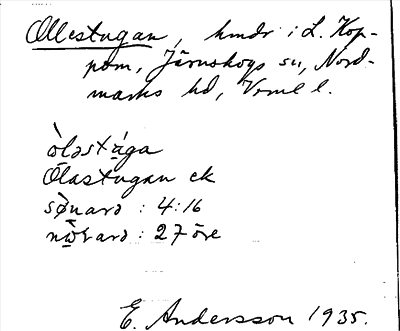 Ollestugan, hmdr i L. Kop-
pom, Järnskogs sn, Nord-
marks hd, Vrml l.
òləstá̱ga
Ólastugan ek
sø̀narə : 4:16
: 27 öre
E. Andersson 1935.